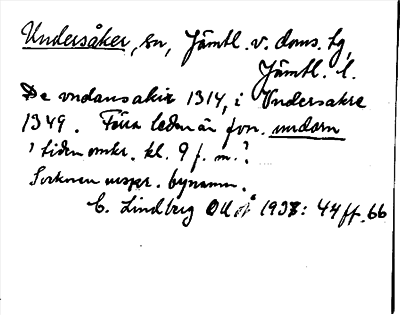 Undersåker, sn, Jämtl. v. doms. tg,
Jämtl. l.
De vndansakir 1314, i Vndersakre
1349. Förra leden är fvn. undorn
'tiden omkr. kl. 9 f. m.'?
Socknen urspr. bynamn.
C. Lindberg OUÅ 1937: 44 ff. 66